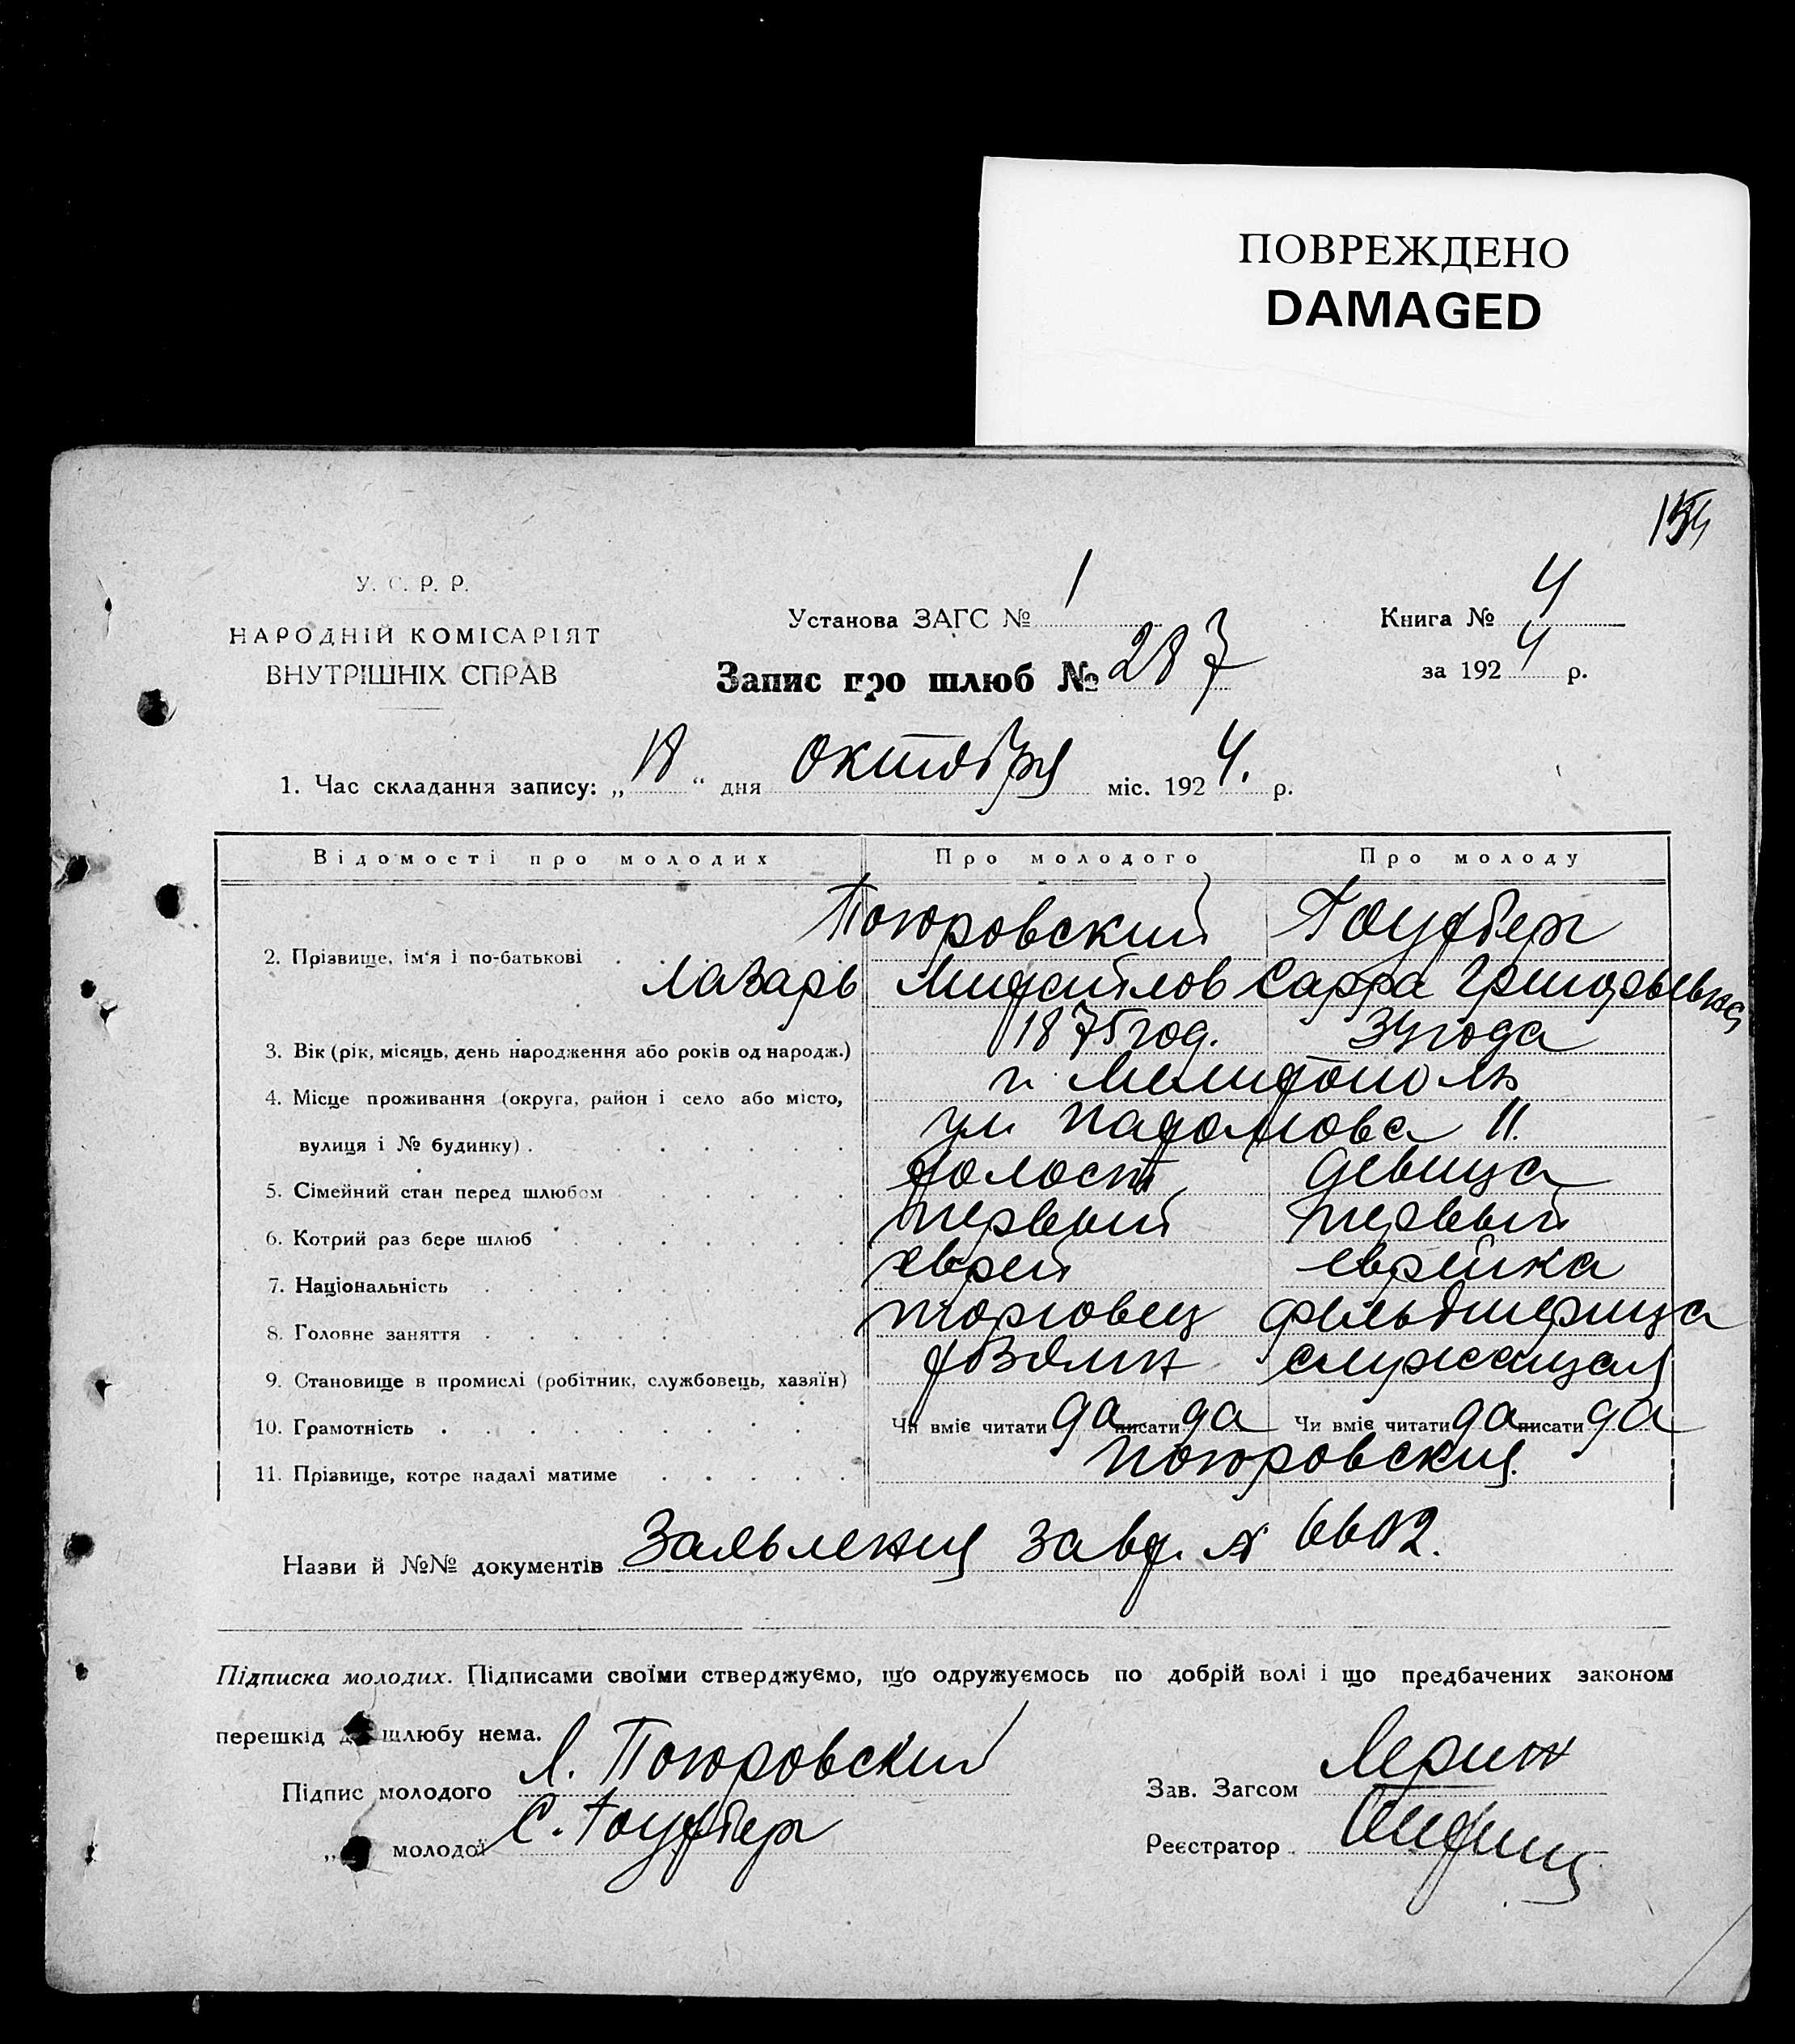 ПОВРЕЖДЕНО
DAMAGED
У. С. Р. Р.
НАРОДНІЙ КОМІСАРІЯТ
ВНУТРІШНІХ СПРАВ
Установа ЗАГС № 1
Книга № 4
за 1924 р.
Запис про шлюб № 287
1. Час складання запису: „18“ дня октября міс. 1924. р.
Відомості про молодих Про молодого Про молоду
Погоровский
2. Прізвище, ім'я і по-батькові
Лазарь Сарра Григорьевна
3. Вік (рік, місяць, день народження або років од народж.) 1875 год. 34 года
4. Місце проживання (округа, район і село або місто, г. Мелитополь
вулиця і № будинку) ул 11.
5. Сімейний стан перед шлюбом холост девица
6. Котрий раз бере шлюб первый первый
7. Національність еврей еврейка
8. Головне заняття торговец фельдшерица
9. Становище в промислі (робітник, службовець, хазяїн) хозяин служащая
10. Грамотність Чи вміє читати да писати да Чи вміє читати да писати да
11. Прізвище, котре надалі матиме Погоровский
Назви й №№ документів Заявления №
Підписка молодих. Підписами своїми стверджуємо, що одружуємось по добрій волі і що предбачених законом
перешкід до шлюбу нема.
Підпис молодого Л. Погоровский
Зав. Загсом
„ молодої С.
Реєстратор